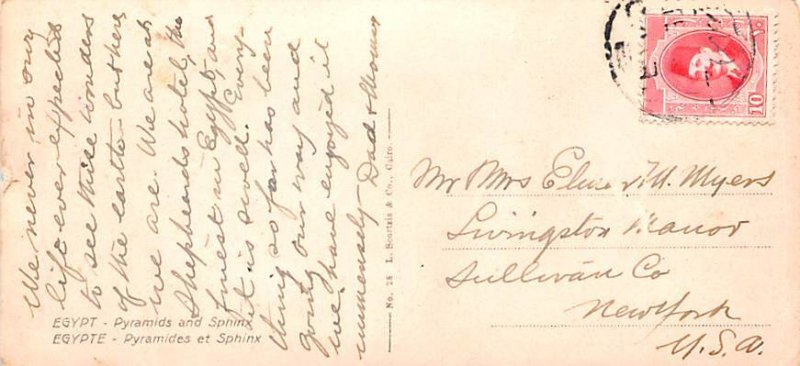 We never in our
life ever expected
to see these wonders
of the earth - but here
we are. We are at
Shepheards hotel, the
finest in Egypt, and
it is swell. Every-
thing so far has been
going our way and
we have enjoyed it
immensely - Dad & Mom
EGYPT - Pyramids and Sphinx
EGYPTE - Pyramides et Sphinx
No. 28 L. Scortzis & Co., Cairo
10
Mr Mrs Elmer M. Myers
Livingston Manor
Sullivan Co
New York
U.S.A.